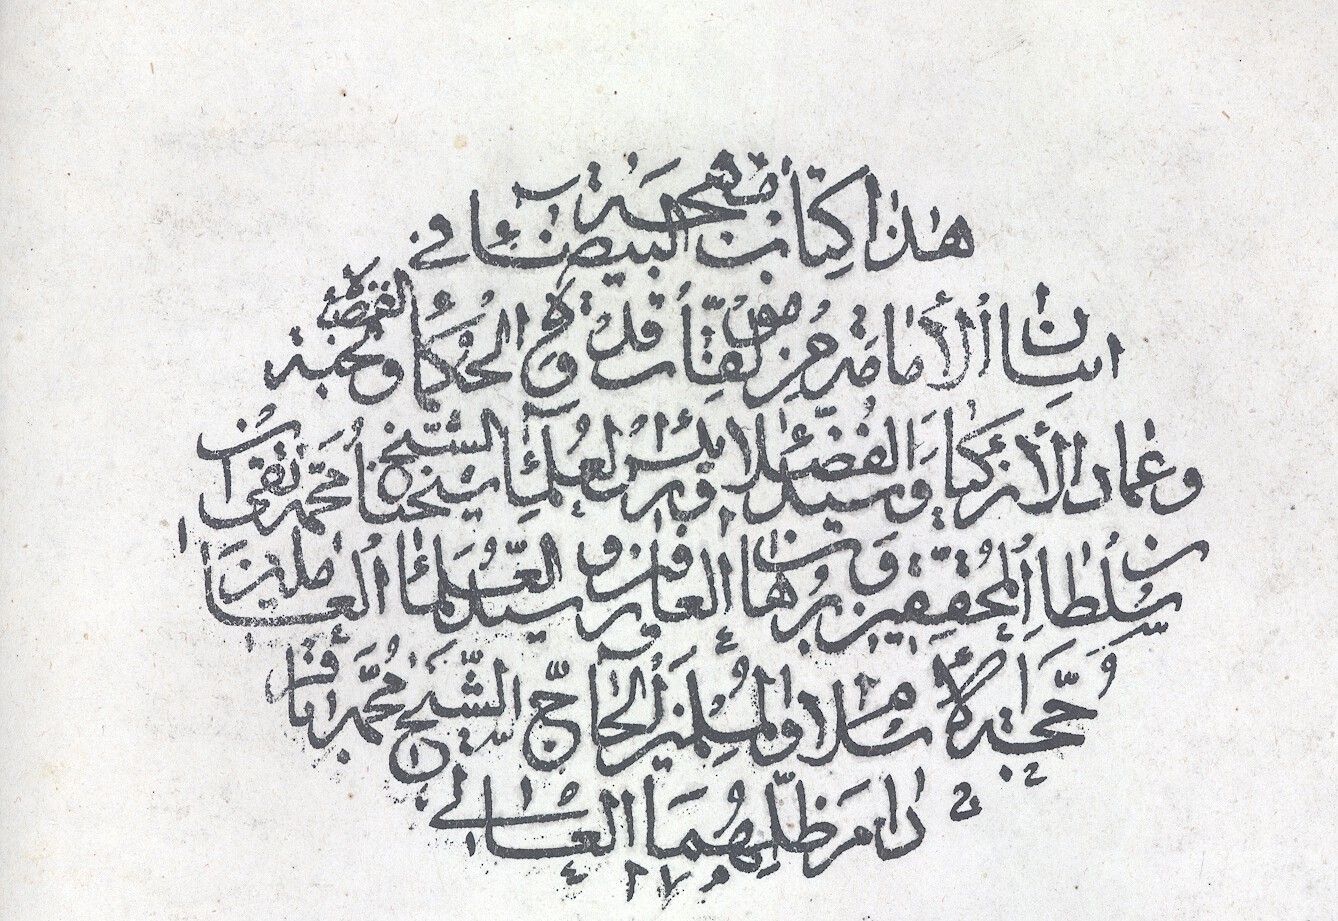 هذا كتاب مهجة البيضاء في
اثبات الأمامة من مؤلفات قدوة الحكما ونخبة الفقهاء
وعماد الأزكياء وسيد الفضلاء ورئيس العلماء شيخنا الشيخ محمد تقي ابن
سلطان المحققين وبرهان العارفين وسيد العلماء العاملين
حجة الأسلام والمسلمين الحاج الشيخ محمد باقر
دام ظلهما العالي